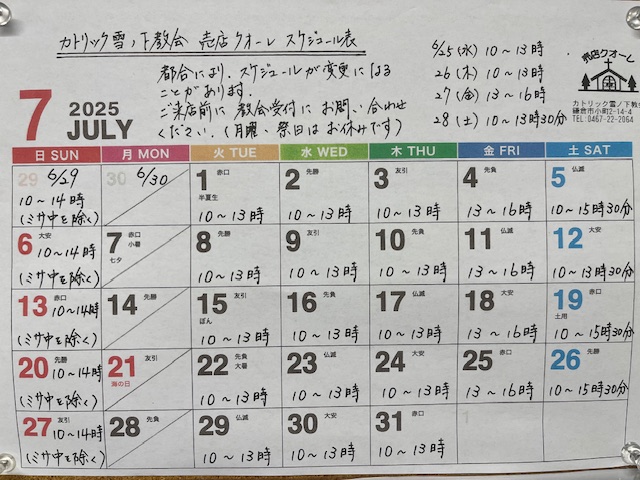 カトリック雪ノ下教会 売店クオーレ スケジュール表
都合により、スケジュールが変更になる
ことがあります.
ご来店前に 教会受付に お問い合わせ
ください. (月曜、祭日は お休みです)
6/25(水) 10~13時
26(木) 10~13時
27(金) 13~16時
28(土) 10~13時30分
売店クオーレ
カトリック雪ノ下教会
鎌倉市小町2-14-4
TEL. 0467-22-2064
7 2025 JULY
日 SUN 月 MON 火 TUE 水 WED 木 THU 金 FRI 土 SAT
29 6/29 30 6/30 1 赤口 2 先勝 3 友引 4 先負 5 仏滅
半夏生
10~14時 10~13時 10~13時 10~13時 13~16時 10~15時30分
(ミサ中を除く)
6 大安 7 赤口 8 先勝 9 友引 10 先負 11 仏滅 12 大安
小暑
七夕
10~14時 10~13時 10~13時 10~13時 13~16時 10~13時30分
(ミサ中を除く)
13 赤口 14 先勝 15 友引 16 先負 17 仏滅 18 大安 19 赤口
ぼん 土用
10~14時 10~13時 10~13時 10~13時 13~16時 10~15時30分
(ミサ中を除く)
20 先勝 21 友引 22 先負 23 仏滅 24 大安 25 赤口 26 先勝
海の日 大暑
10~14時 10~13時 10~13時 10~13時 13~16時 10~15時30分
(ミサ中を除く)
27 友引 28 先負 29 仏滅 30 大安 31 赤口 1
10~14時 10~13時 10~13時 10~13時
(ミサ中を除く)